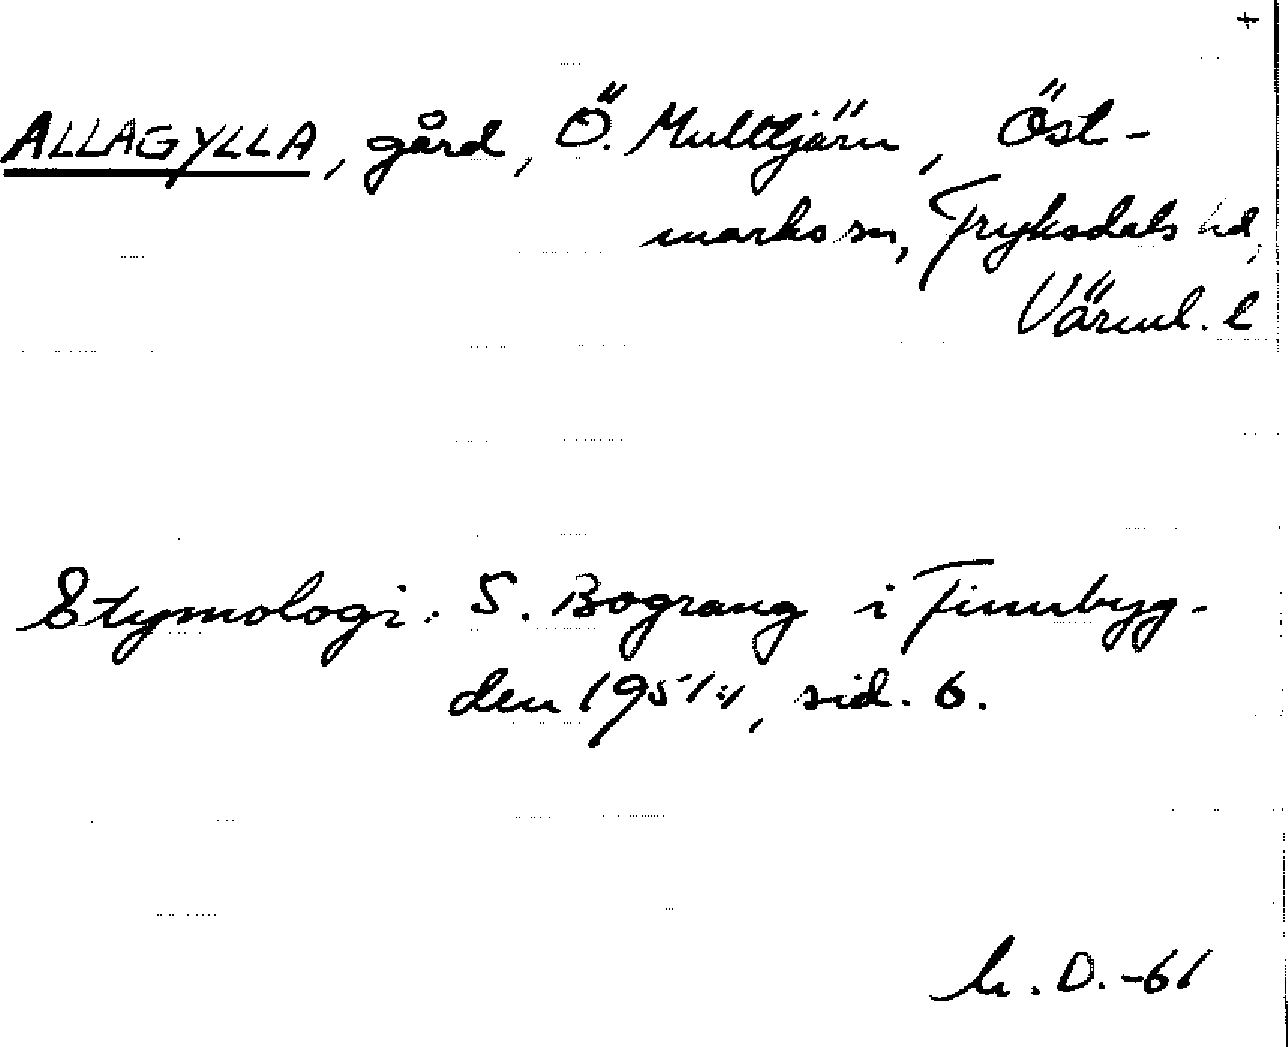 ALLAGYLLA, gård, Ö. Multtjärn, Öst-
marks sn, Fryksdals hd,
Värml. l
Etymologi: S. Bograng i Finnbyg-
den 1951:1, sid. 6.
D. -61